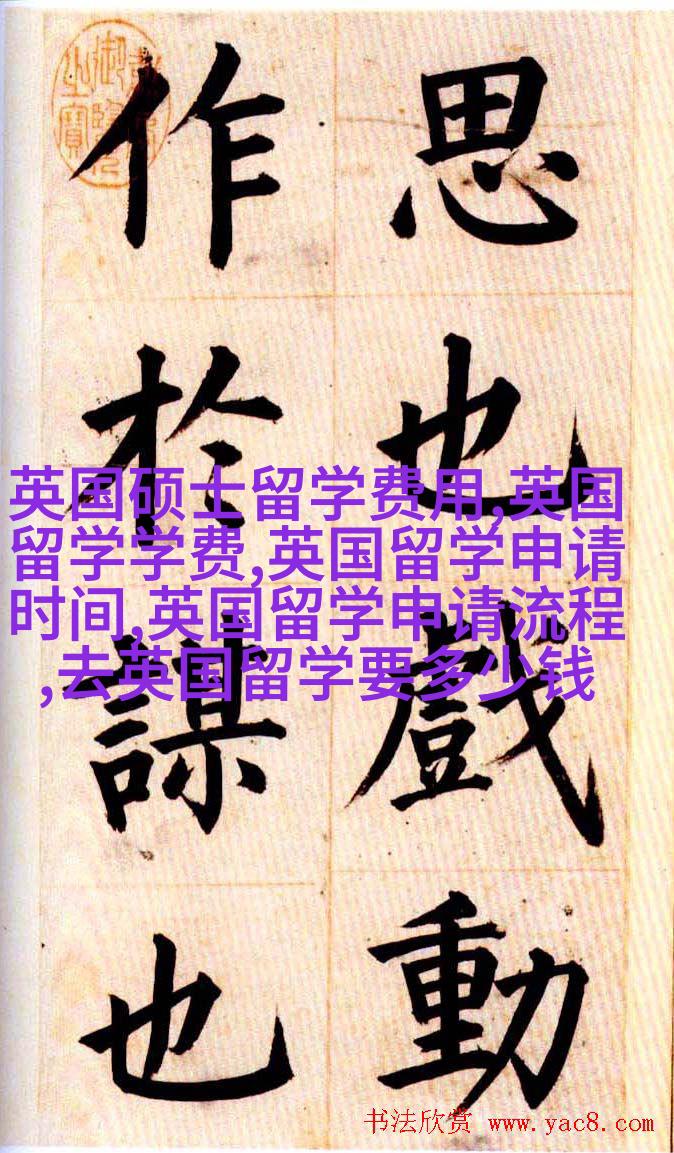 思也戲動
作於謀也
英国硕士留学费用,英国
留学学费,英国留学申请
时间,英国留学申请流程
,去英国留学要多少钱
书法欣赏 www.yac8.com